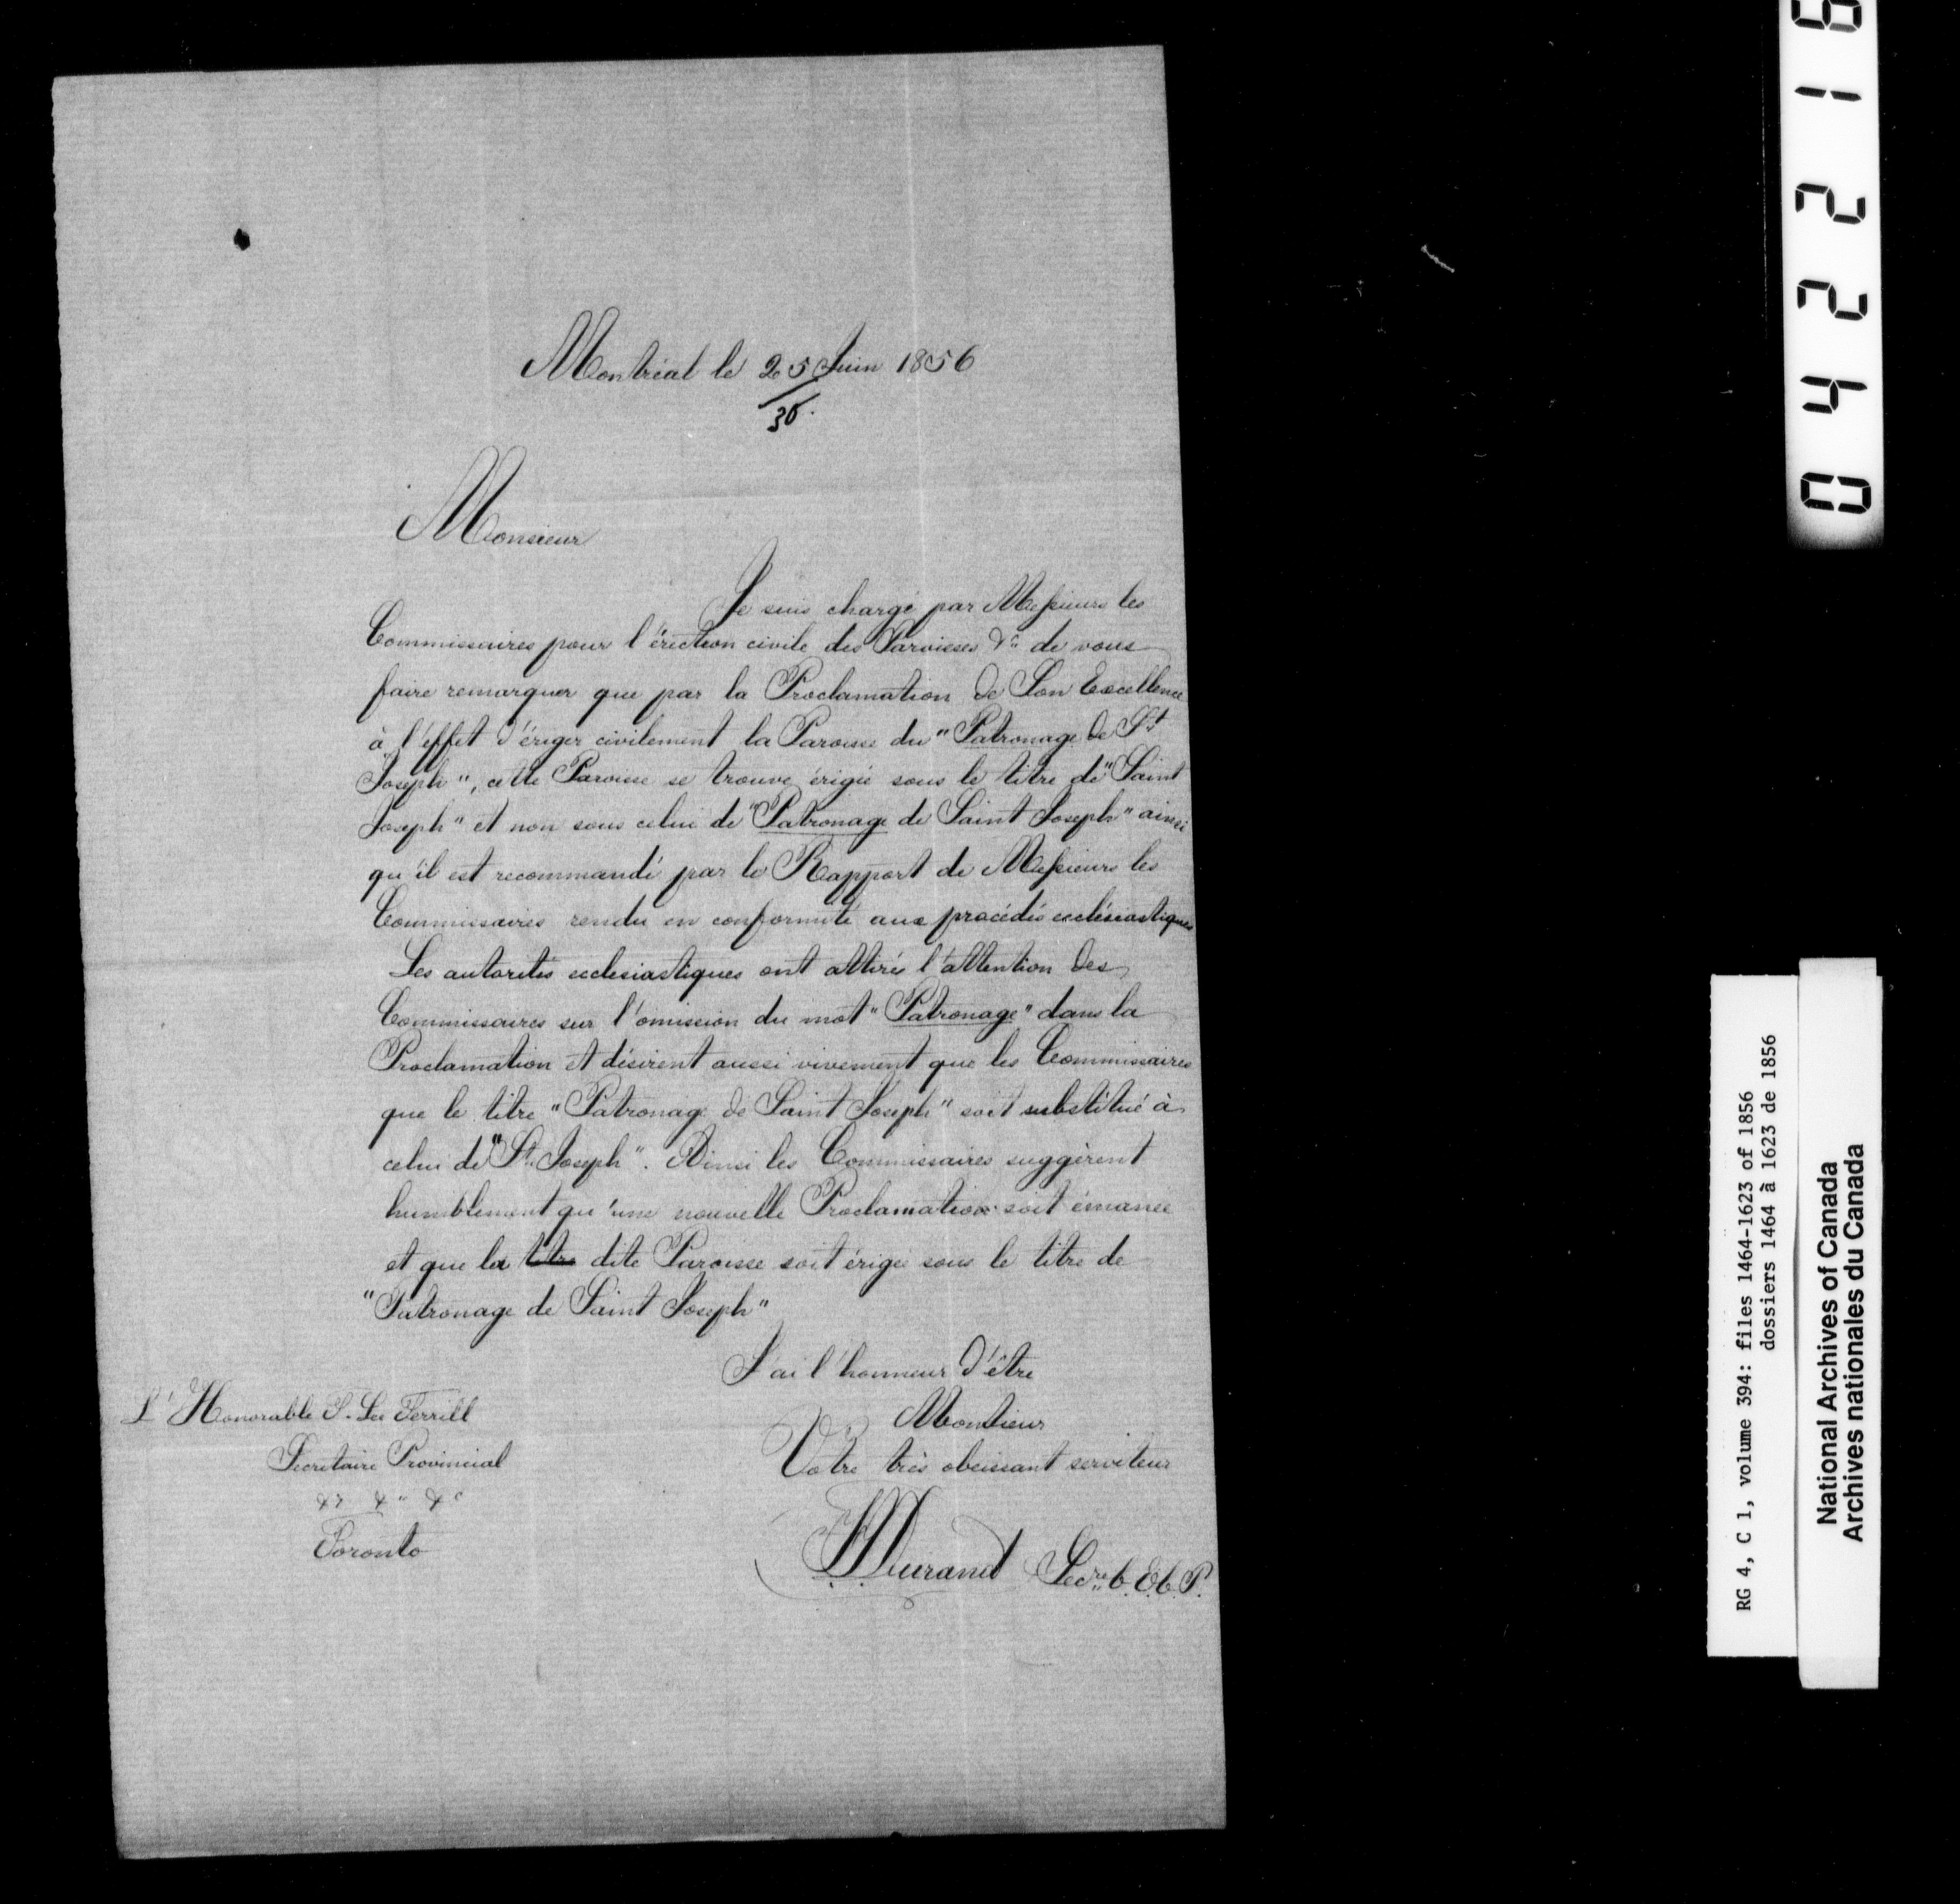 Montréal le 25 Juin 1856
30.
Monsieur
Je suis chargé par Messieurs les
Commissaires pour l'érection civile des Paroisses &c de vous
faire remarquer que par la Proclamation de Son Excellence
à l'effet d'ériger civilement la Paroisse du "Patronage de St
Joseph", cette Paroisse se trouve érigée sous le titre de "Saint
Joseph" et non sous celui de "Patronage de Saint Joseph" ainsi
qu'il est recommandé par le Rapport de Messieurs les
Commissaires rendu en conformité aux procédés ecclésiastiques
Les autorités ecclesiastiques ont attiré l'attention des
Commissaires sur l'omission du mot "Patronage" dans la
Proclamation et désirent aussi vivement que les Commissaires
que le titre "Patronage de Saint Joseph" soit substitué à
celui de "St. Joseph". Ainsi les Commissaires suggèrent
humblement qu'une nouvelle Proclamation soit émanée
et que la titre dite Paroisse soit érigée sous le titre de
"Patronage de Saint Joseph"
J'ai l'honneur d'être
Monsieur
Votre très obeissant serviteur
Durand Secre C. E. C. P.
L'Honorable T. Lee Terrill
Secretaire Provincial
&c &c &c
Toronto
RG 4, C 1, volume 394: files 1464-1623 of 1856
dossiers 1464 à 1623 de 1856
National Archives of Canada
Archives nationales du Canada